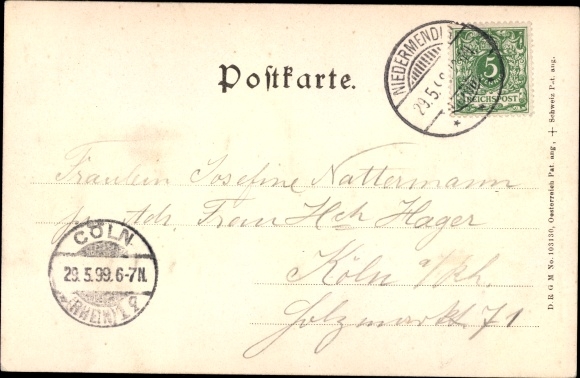 Postkarte.
NIEDERMENDI
29.5.9
5
REICHSPOST
Fräulein Josefine Nattermann
Adr. Frau Hch Hager
Köln a/Rh.
Holzmarkt 71
CÖLN
29.5.99.6-7N.
(RHEIN) 1
D R G M No. 103130, Oesterreich Pat. ang., + Schweiz Pat. ang.